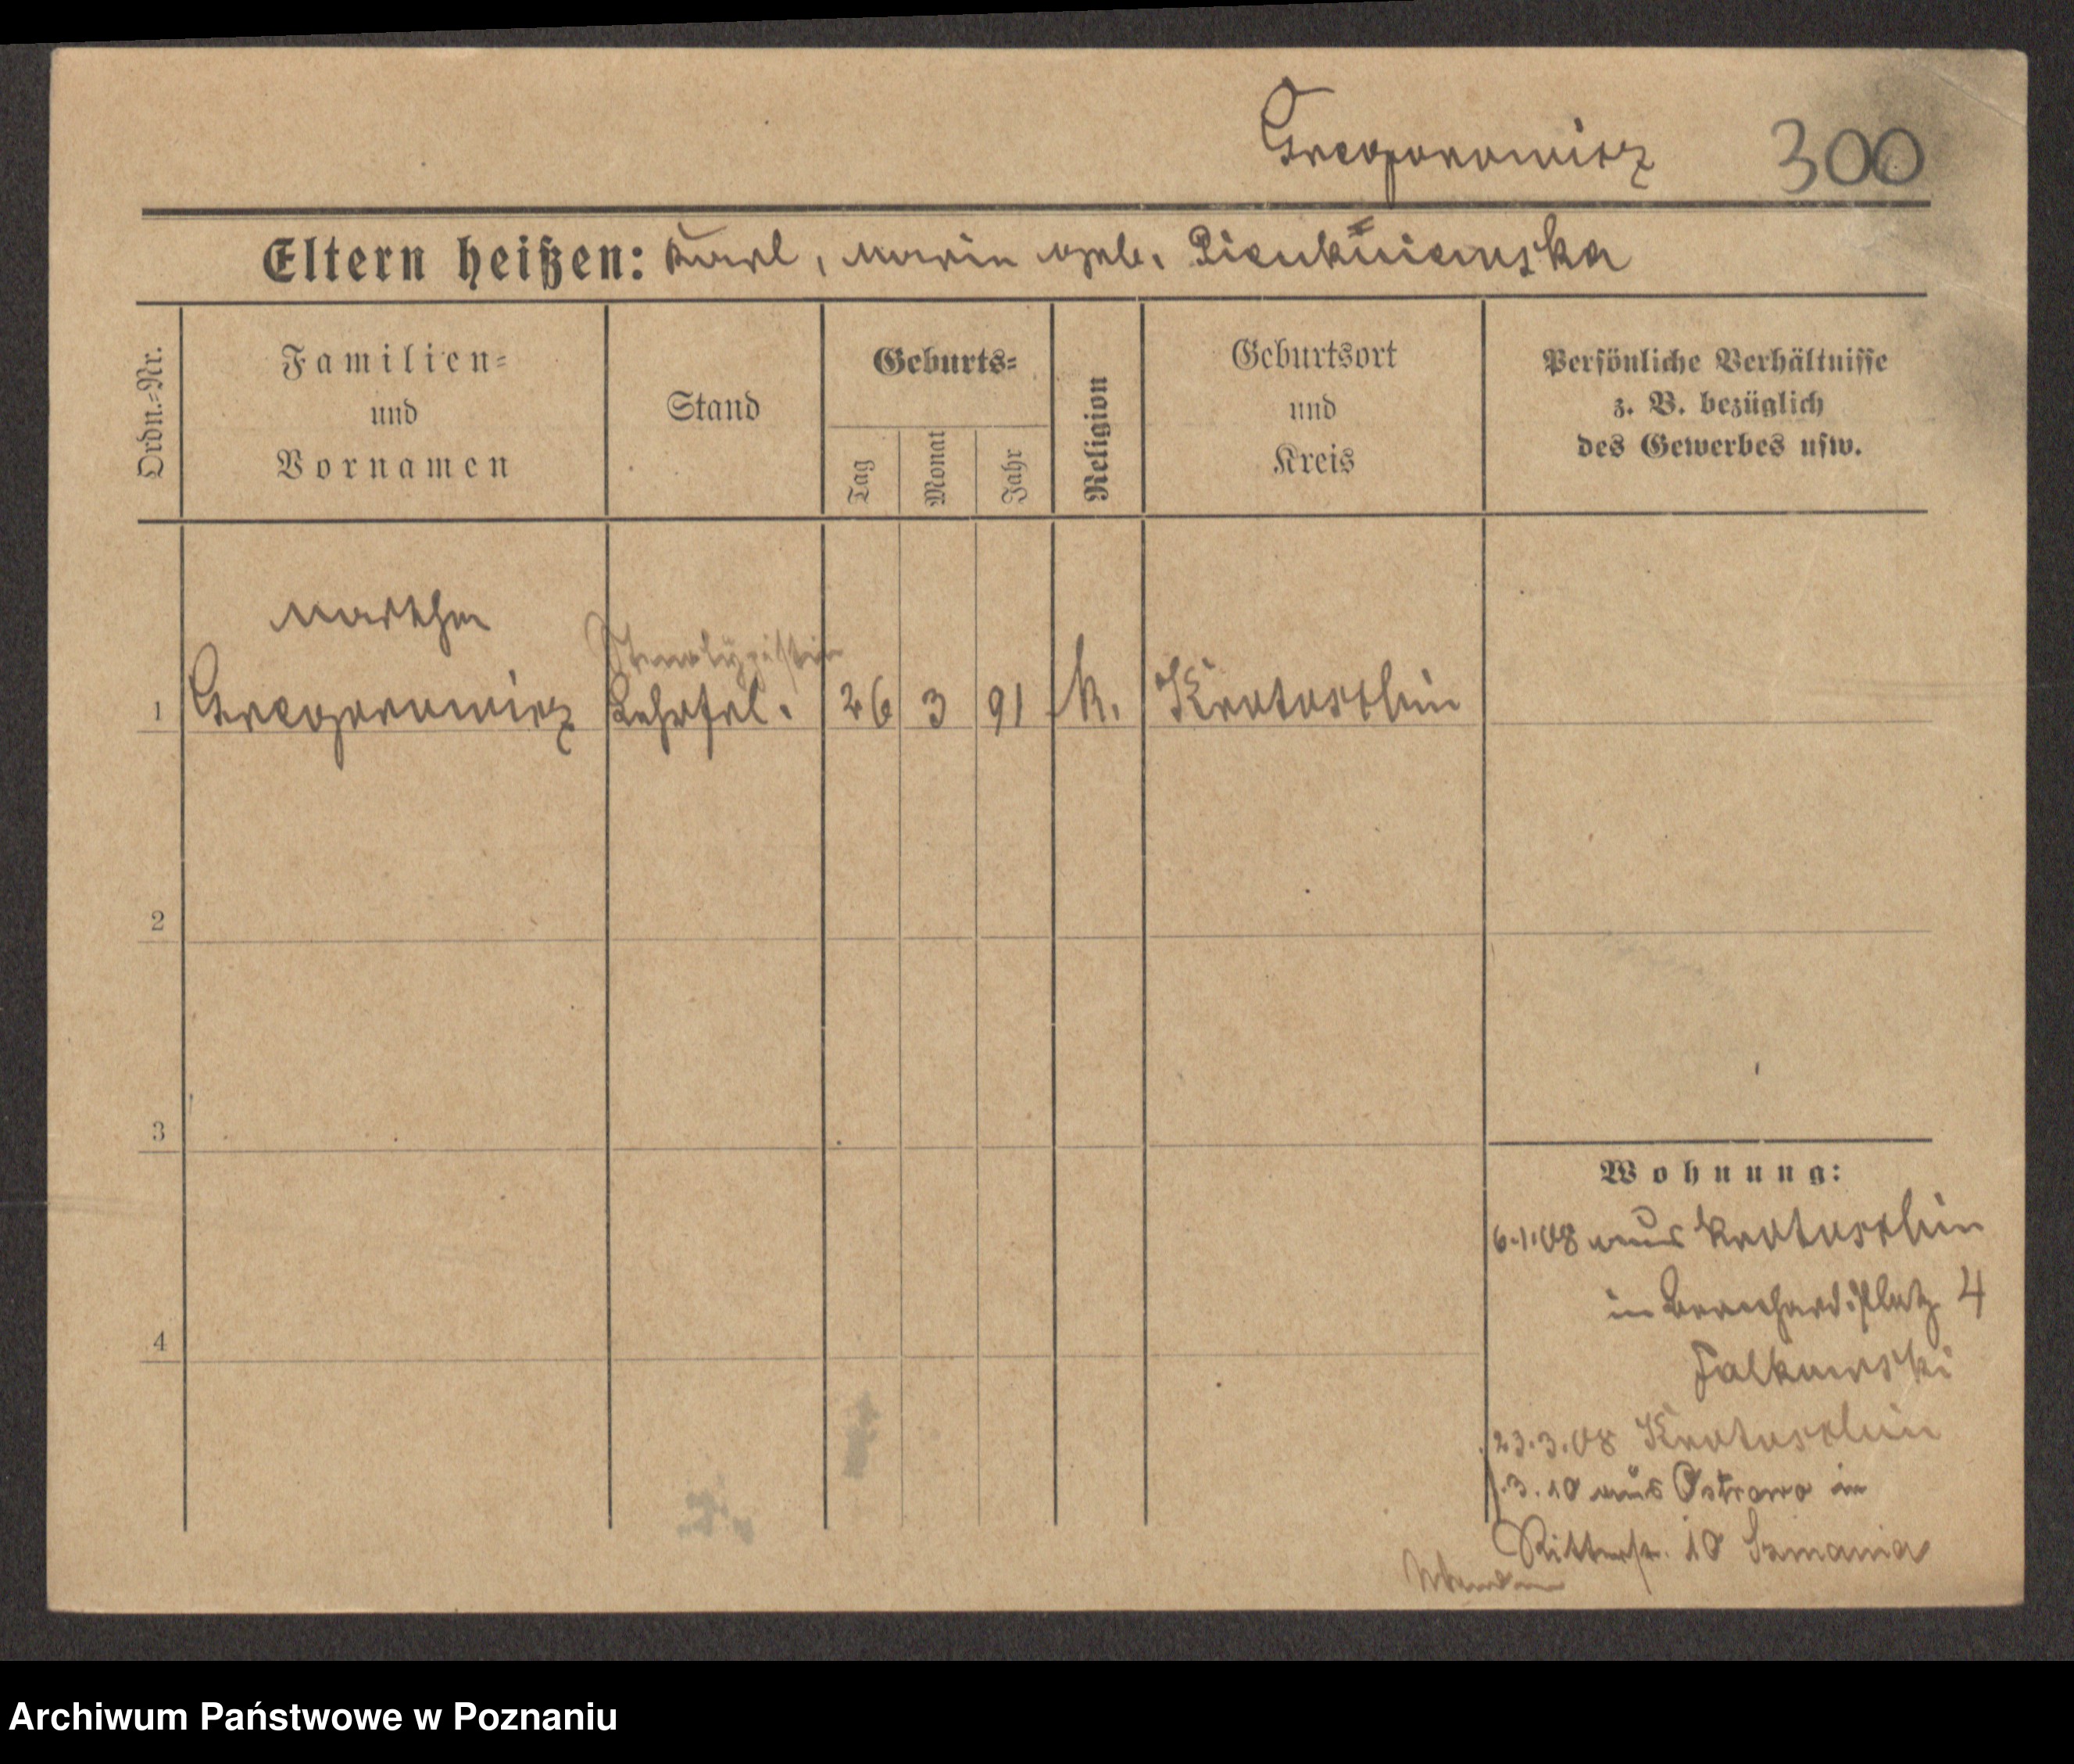 Gregorowicz 300
Eltern heißen: Karl, Maria geb. Pienkniewska
Ordn.-Nr.
Familien-
und
Vornamen
Stand
Geburts-
Tag
Monat
Jahr
Religion
Geburtsort
und
Kreis
Persönliche Verhältnisse
z. B. bezüglich
des Gewerbes usw.
Martha
Stenotypistin
1 Gregorowicz Lehrfrl. 26 3 91 k. Krotoschin
2
3
4
Wohnung:
6.1.08 aus Krotoschin
in Bernhard.Platz 4
Falkowski
23.3.08 Krotoschin
1.3.10 aus Ostrowo in
Ritterstr. 10 Szmania
Archiwum Państwowe w Poznaniu